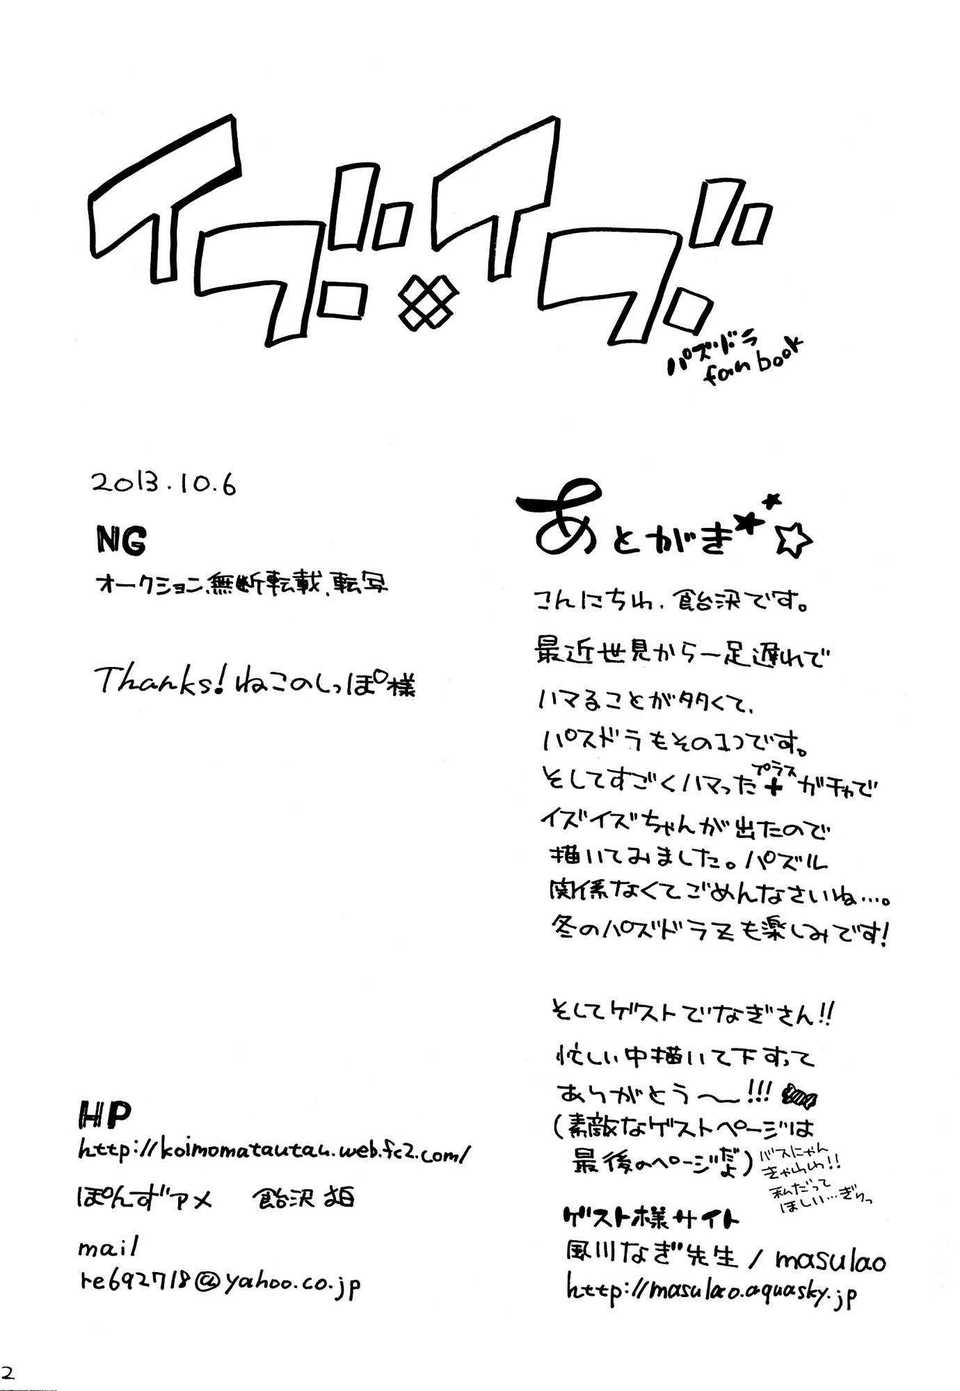 イズ×イズ
パズドラ
fan book
2013.10.6
NG
オークション、無断転載、転写
Thanks! ねこのしっぽ様
HP
http://koimomatautau.web.fc2.com/
ぽんずアメ 飴沢
mail
re692718@yahoo.co.jp
あとがき★★☆
こんにちわ、飴沢です。
最近世見から一足遅れで
ハマることが多くて、
パスドラもその1つです。
そしてすごくハマった+プラスガチャで
イズイズちゃんが出たので
描いてみました。パズル
関係なくてごめんなさいね…。
冬のパズドラZも楽しみです!
そしてゲストでなぎさん!!
忙しい中描いて下すって
ありがとう〜!!!
(素敵なゲストページは
最後のページだよ)
バスにゃん
きゃわわ!!
私だって
ほしい…ぎりっ
ゲスト様サイト
風川なぎ先生/masulao
http://masulao.aquasky.jp
2